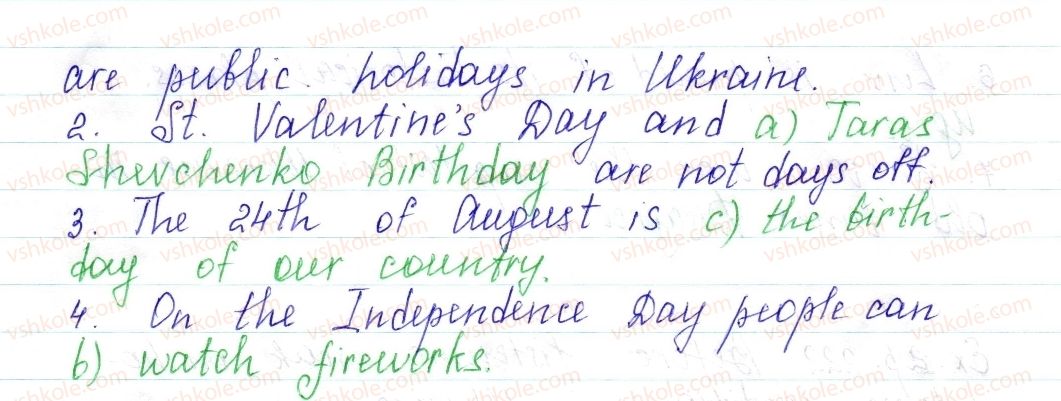 are public holidays in Ukraine.
2. St. Valentine's Day and a) Taras
Shevchenko Birthday are not days off.
3. The 24th of August is c) the birth-
day of our country.
4. On the Independence Day people can
b) watch fireworks.